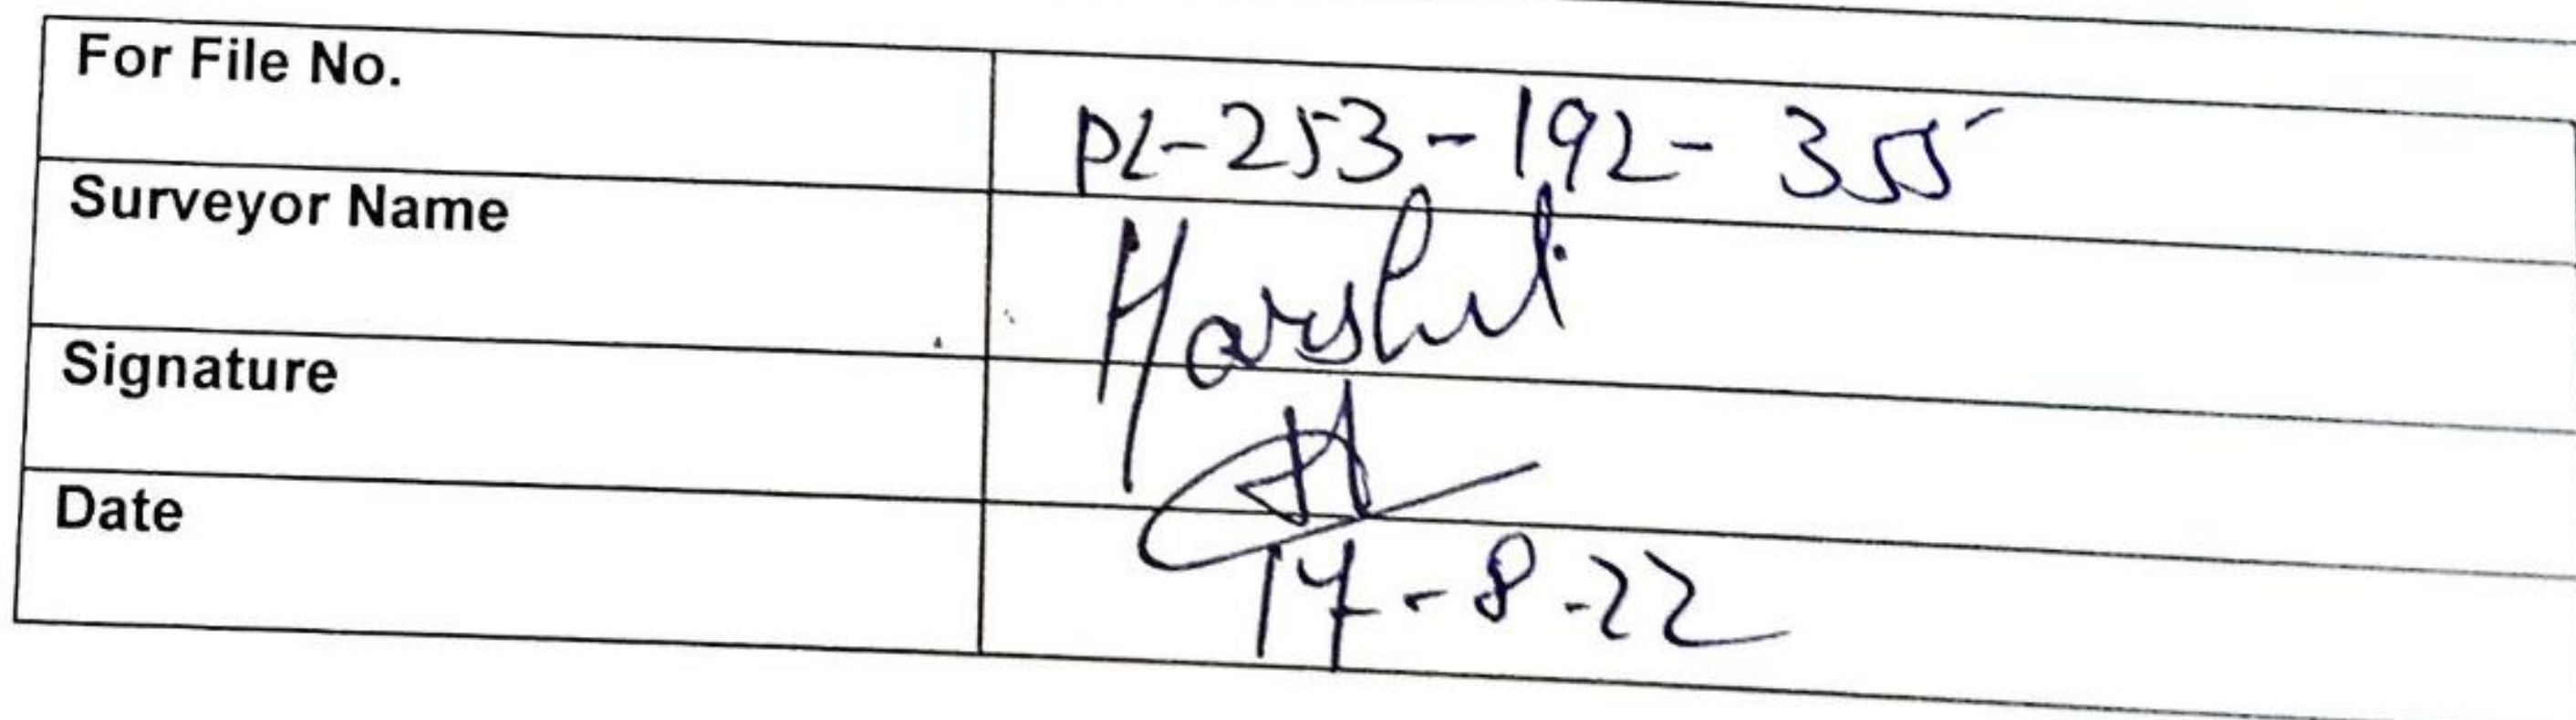 For File No.
PL-253-192-355
Surveyor Name
Harshit
Signature
Date
17-8-22